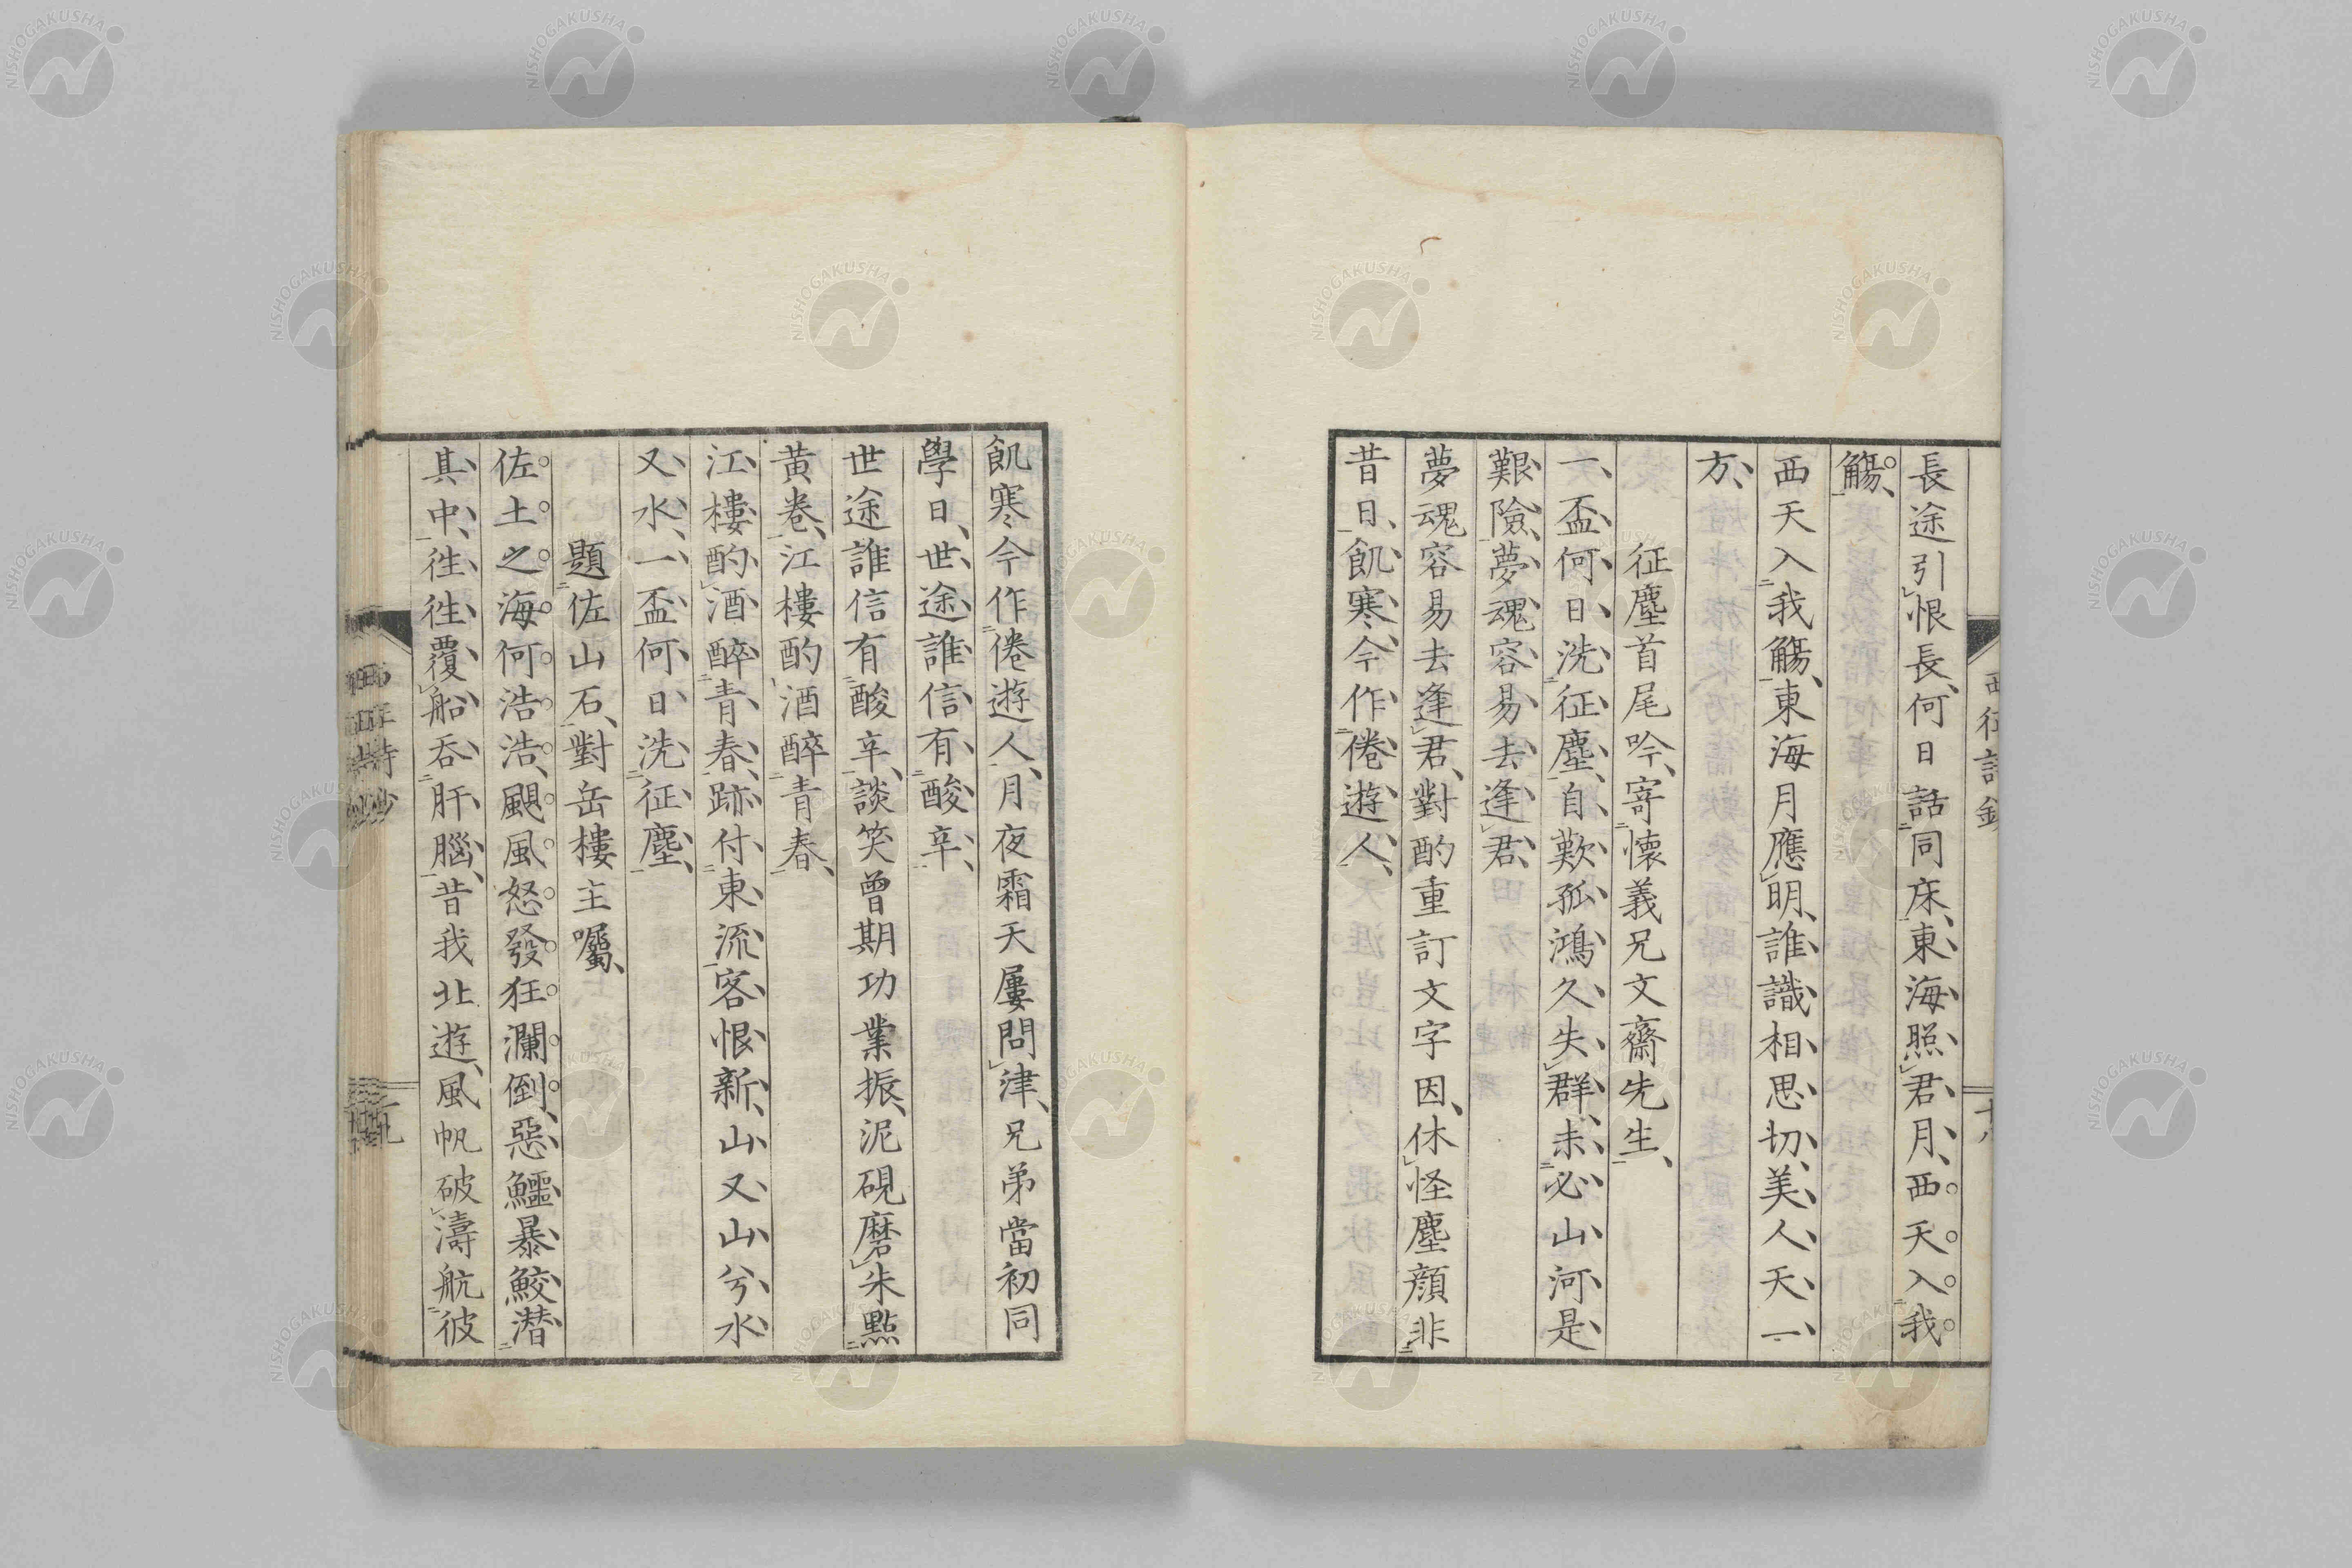 長途引恨長、何日話同床、東海照君月、西天入我
觴、
西天入我觴、東海月應明、誰識相思切、美人天一
方、
征塵首尾吟、寄懷義兄文齋先生、
一盃何日洗征塵、自歎孤鴻久失群、未必山河是
艱險、夢魂容易去逢君、
夢魂容易去逢君、對酌重訂文字因、休怪塵顔非
昔日、飢寒今作倦遊人、
飢寒今作倦遊人、月夜霜天屢問津、兄弟當初同
學日、世途誰信有酸辛、
世途誰信有酸辛、談笑曾期功業振、泥硯磨朱點
黄卷、江樓酌酒醉青春、
江樓酌酒醉青春、跡付東流客恨新、山又山兮水
又水、一盃何日洗征塵、
題佐山石、對岳樓主囑、
佐土之海何浩浩、颶風怒發狂瀾倒、惡鱷暴鮫潜
其中、徃徃覆船呑肝腦、昔我北遊、風帆破濤航彼
西征詩鈔